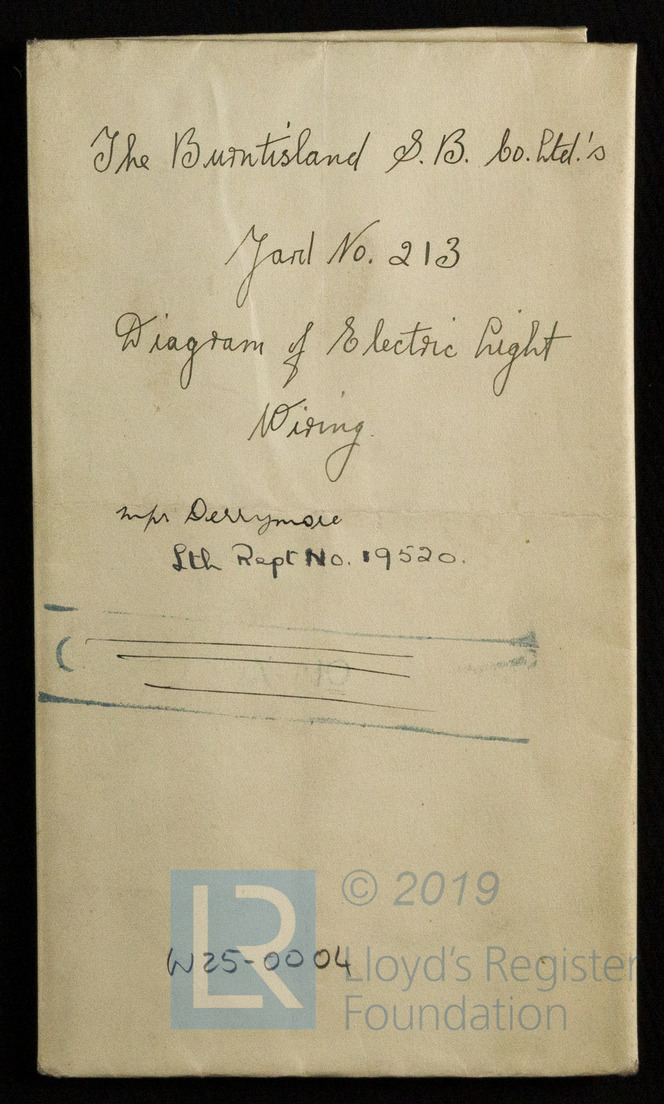 The Burntisland S.B. Co. Ltd.'s
Yard No. 213
Diagram of Electric Light
Wiring.
m/v Derrymore
Lth Rept No. 19520.
W25-0004
LR
© 2019
Lloyd's Register
Foundation